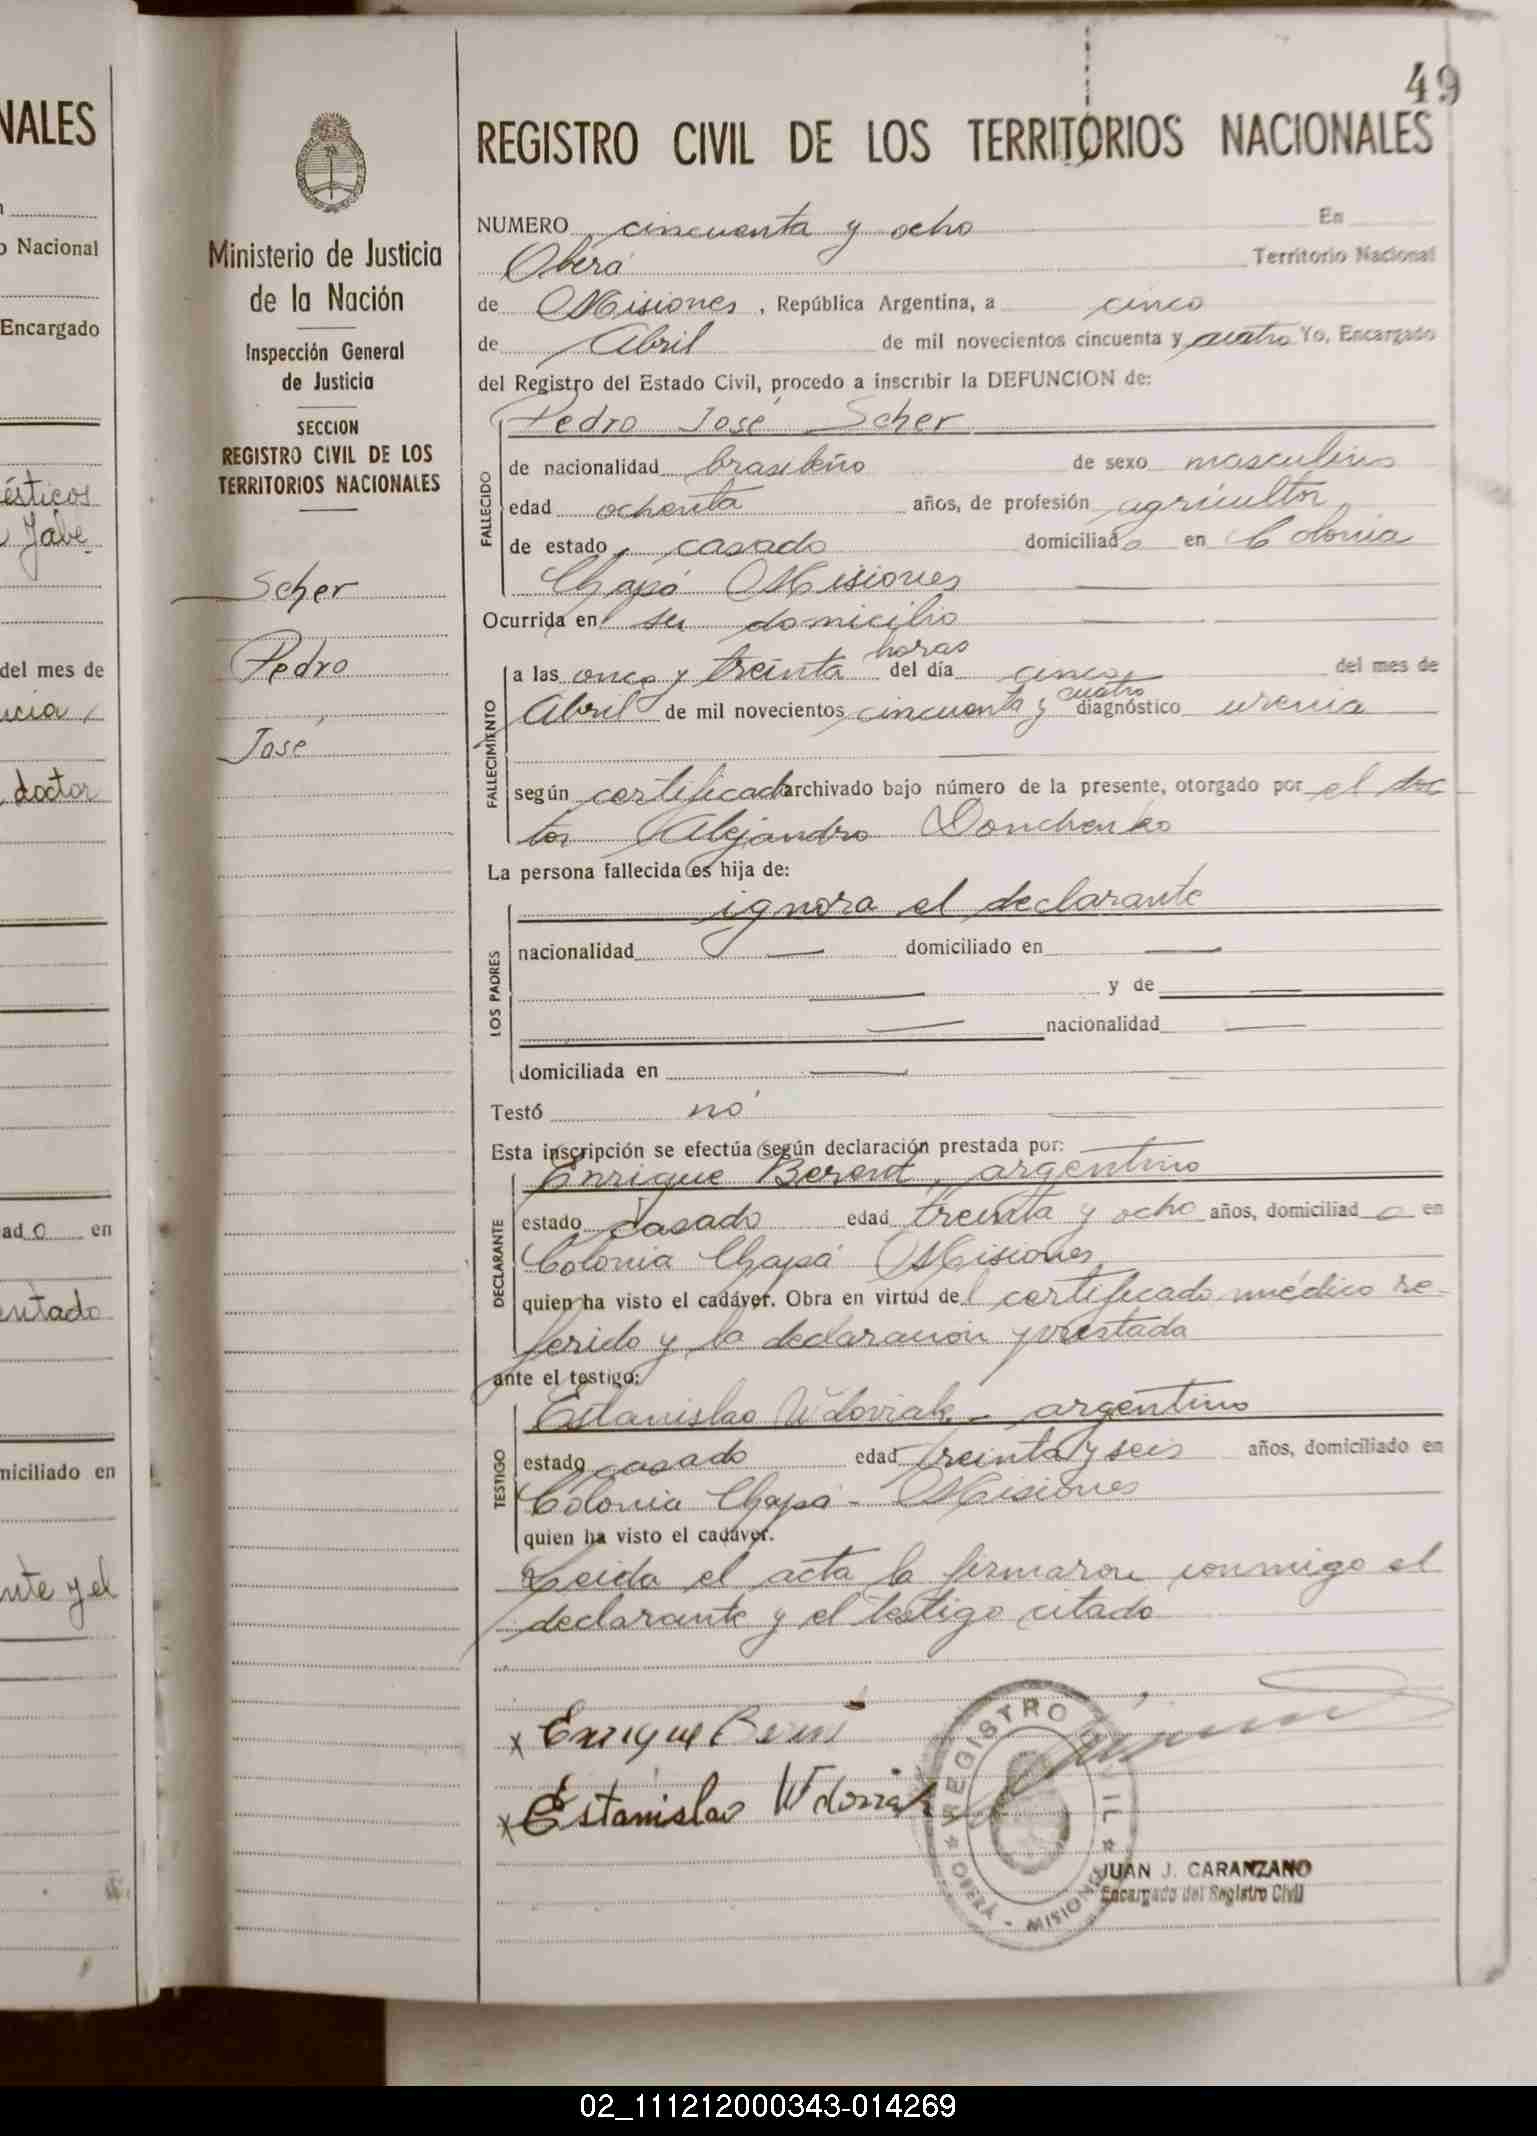 49
NALES
Nacional
Encargado
ésticos
del mes de
doctor
ad o en
miciliado en
nte y el
Ministerio de Justicia
de la Nación
Inspección General
de Justicia
SECCION
REGISTRO CIVIL DE LOS
TERRITORIOS NACIONALES
Scher
Pedro
José
REGISTRO CIVIL DE LOS TERRITORIOS NACIONALES
NUMERO cincuenta y ocho En
Oberá Territorio Nacional
de Misiones, República Argentina, a cinco
de Abril de mil novecientos cincuenta y cuatro Yo, Encargado
del Registro del Estado Civil, procedo a inscribir la DEFUNCION de:
Pedro José Scher
FALLECIDO
de nacionalidad brasileño de sexo masculino
edad ochenta años, de profesión agricultor
de estado casado domiciliado en Colonia
Chapá Misiones
Ocurrida en su domicilio
FALLECIMIENTO
a las once y treinta horas del día cinco del mes de
Abril de mil novecientos cincuenta y cuatro diagnóstico uremia
según certificado archivado bajo número de la presente, otorgado por el doc
tor Alejandro Donchenko
La persona fallecida es hija de:
ignora el declarante
LOS PADRES
nacionalidad — domiciliado en —
— y de —
— nacionalidad —
domiciliada en —
Testó no
Esta inscripción se efectúa según declaración prestada por:
Enrique Berent, argentino
DECLARANTE
estado casado edad treinta y ocho años, domiciliado en
Colonia Chapá Misiones
quien ha visto el cadáver. Obra en virtud del certificado médico re-
ferido y la declaración prestada
ante el testigo:
Estanislao Wdoviak - argentino
TESTIGO
estado casado edad treinta y seis años, domiciliado en
Colonia Chapá - Misiones
quien ha visto el cadáver.
Leida el acta la firmaron conmigo el
declarante y el testigo citado
x Enrique
x Estanislao
REGISTRO CIVIL
OBERÁ - MISIONES
JUAN J. CARANZANO
Encargado del Registro Civil
02_111212000343-014269